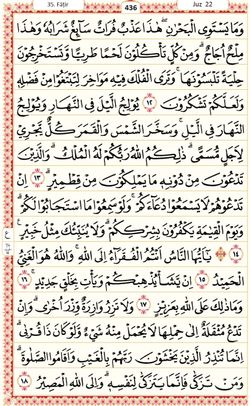 35. Fāṭir
436
Juz 22
وَمَا يَسْتَوِى الْبَحْرٰنِ ۖ هٰذَا عَذْبٌ فُرَاتٌ سَآئِغٌ شَرَابُهٗ وَهٰذَا
مِلْحٌ اُجَاجٌ ؕ وَمِنْ كُلٍّ تَاْكُلُوْنَ لَحْمًا طَرِيًّا وَّتَسْتَخْرِجُوْنَ
حِلْيَةً تَلْبَسُوْنَهَا ۚ وَتَرَى الْفُلْكَ فِيْهِ مَوَاخِرَ لِتَبْتَغُوْا مِنْ فَضْلِهٖ
وَلَعَلَّكُمْ تَشْكُرُوْنَ ۝١٢ يُوْلِجُ الَّيْلَ فِى النَّهَارِ وَيُوْلِجُ
النَّهَارَ فِى الَّيْلِ ۙ وَسَخَّرَ الشَّمْسَ وَالْقَمَرَ ۖ كُلٌّ يَّجْرِىْ
لِاَجَلٍ مُّسَمًّى ؕ ذٰلِكُمُ اللّٰهُ رَبُّكُمْ لَهُ الْمُلْكُ ؕ وَالَّذِيْنَ
تَدْعُوْنَ مِنْ دُوْنِهٖ مَا يَمْلِكُوْنَ مِنْ قِطْمِيْرٍ ۝١٣ اِنْ
تَدْعُوْهُمْ لَا يَسْمَعُوْا دُعَآءَكُمْ ۚ وَلَوْ سَمِعُوْا مَا اسْتَجَابُوْا لَكُمْ ؕ
وَيَوْمَ الْقِيٰمَةِ يَكْفُرُوْنَ بِشِرْكِكُمْ ؕ وَلَا يُنَبِّئُكَ مِثْلُ خَبِيْرٍ
۝١٤ يٰۤاَيُّهَا النَّاسُ اَنْتُمُ الْفُقَرَآءُ اِلَى اللّٰهِ ۚ وَاللّٰهُ هُوَ الْغَنِىُّ
الْحَمِيْدُ ۝١٥ اِنْ يَّشَاْ يُذْهِبْكُمْ وَيَاْتِ بِخَلْقٍ جَدِيْدٍ ۝١٦
وَمَا ذٰلِكَ عَلَى اللّٰهِ بِعَزِيْزٍ ۝١٧ وَلَا تَزِرُ وَازِرَةٌ وِّزْرَ اُخْرٰى ؕ وَاِنْ
تَدْعُ مُثْقَلَةٌ اِلٰى حِمْلِهَا لَا يُحْمَلْ مِنْهُ شَىْءٌ وَّلَوْ كَانَ ذَا قُرْبٰى ؕ
اِنَّمَا تُنْذِرُ الَّذِيْنَ يَخْشَوْنَ رَبَّهُمْ بِالْغَيْبِ وَاَقَامُوا الصَّلٰوةَ ؕ
وَمَنْ تَزَكّٰى فَاِنَّمَا يَتَزَكّٰى لِنَفْسِهٖ ؕ وَاِلَى اللّٰهِ الْمَصِيْرُ ۝١٨